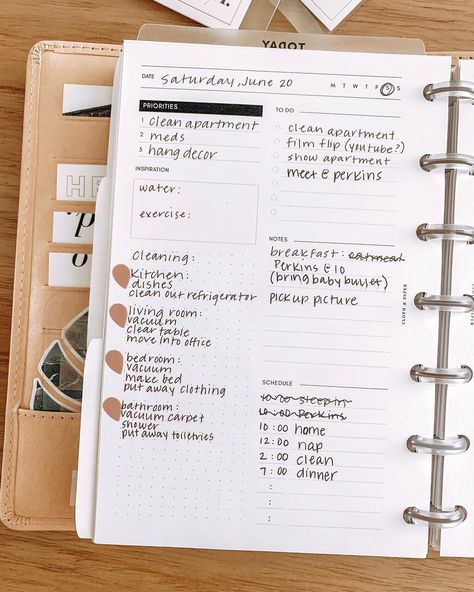 TODAY
DATE Saturday, June 20
M T W T F S S
PRIORITIES
1 clean apartment
2 meds
3 hang decor
INSPIRATION
water:
exercise:
Cleaning:
Kitchen:
dishes
clean out refrigerator
living room:
vacuum
clear table
move into office
bedroom:
vacuum
make bed
put away clothing
bathroom:
vacuum carpet
shower
put away toiletries
TO DO
clean apartment
film flip (youtube?)
show apartment
meet @ perkins
NOTES
breakfast: oatmeal
Perkins @ 10
(bring baby bullet)
pick up picture
SCHEDULE
10:00 sleep in
10:00 Perkins
10:00 home
12:00 nap
2:00 clean
7:00 dinner
CLOTH & PAPER
HE